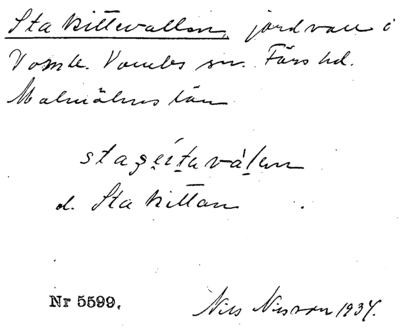 Stakittevallen, jordvall i
Vomb. Vombs sn. Färs hd.
Malmöhus län
d. Stakittan
Nr 5599.
Nils Nilsson 1934.